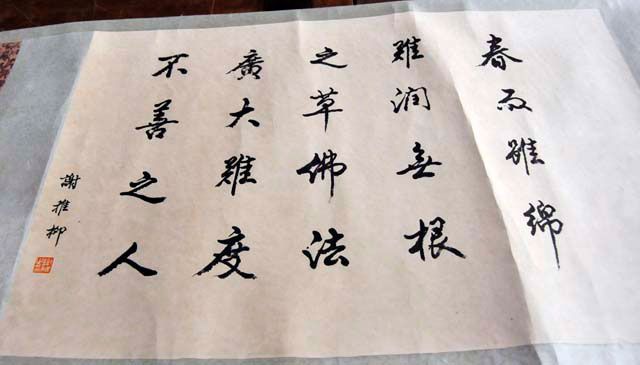 春雨雖綿
難潤無根
之草佛法
廣大難度
不善之人
謝稚柳